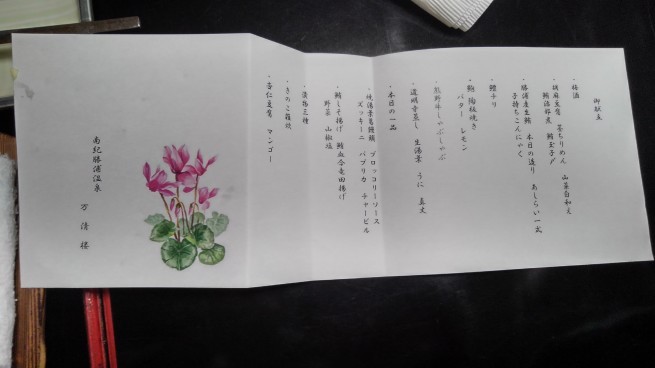 御献立
・梅酒
・胡麻豆腐 茎ちりめん 山菜白和え
鮪旨好煮 鮪玉子〆
・勝浦産生鮪 本日の造り あしらい一式
子持ちこんにゃく
・鱧チリ
・鮑 陶板焼き
バター レモン
・熊野牛しゃぶしゃぶ
・道明寺蒸し 生湯葉 うに 真丈
・本日の一品
・焼湯葉万頭 ブロッコリーソース
ズッキーニ パプリカ チャービル
・鮪しそ揚げ 鮪血合竜田揚げ
野菜 山椒塩
・漬物三種
・きのこ雑炊
・杏仁豆腐 マンゴー
南紀勝浦温泉 万清楼